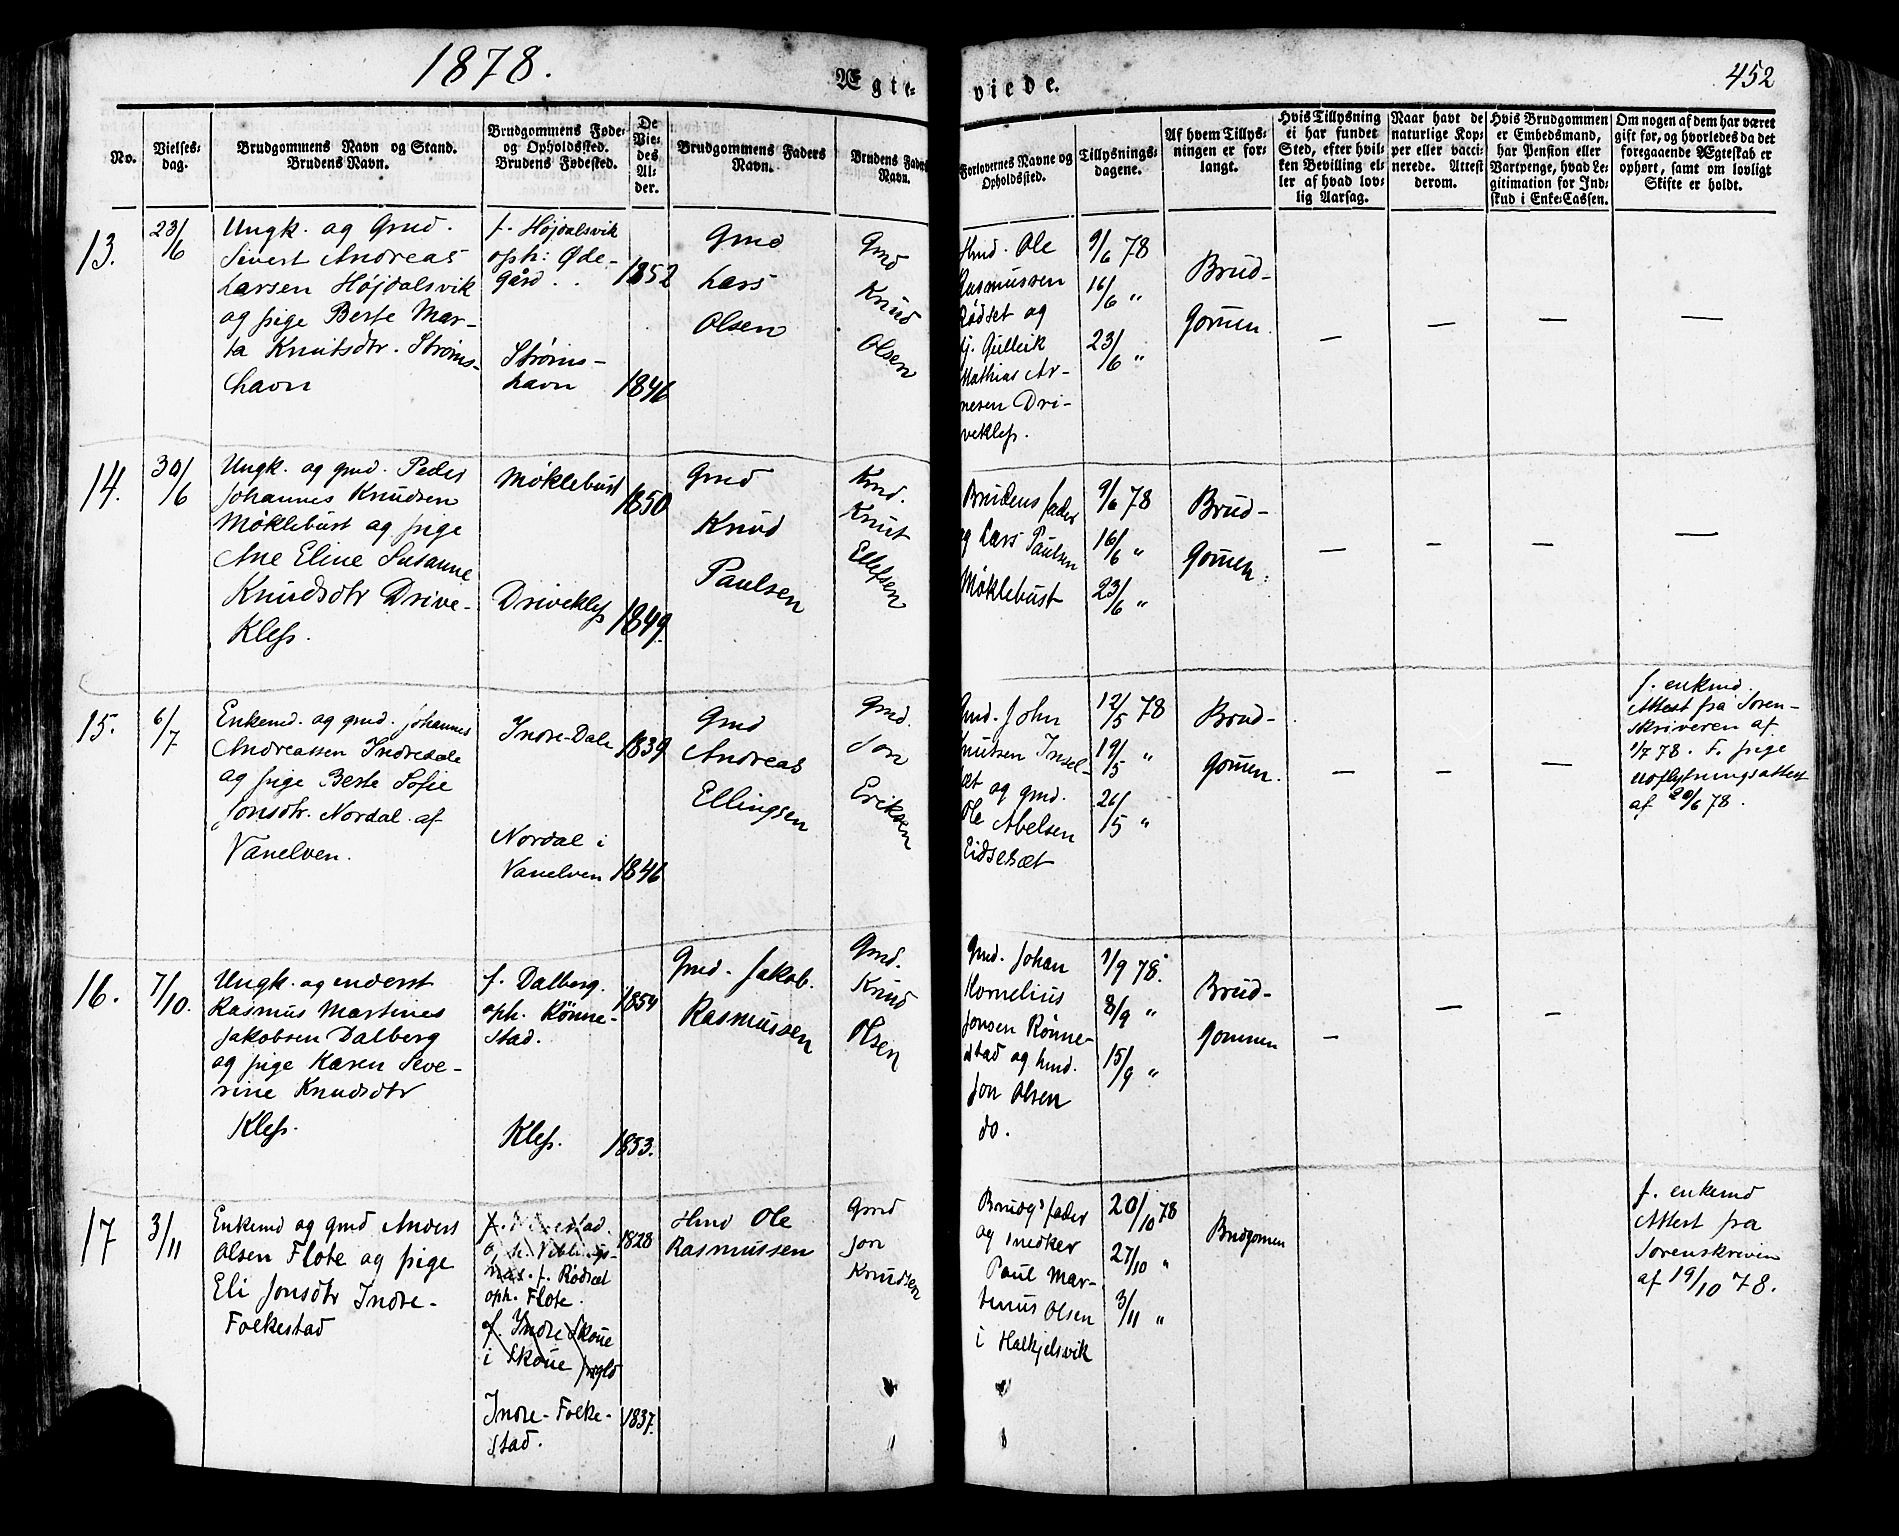 1878.
Ægte-
viede.
452
No.
Vielses-
dag.
Brudgommens Navn og Stand.
Brudens Navn.
Brudgommens Føde-
og Opholdssted.
Brudens Fødested.
De
Vie-
des
Al-
der.
Brudgommens Faders
Navn.
Brudens Faders
Navn.
Forlovernes Navne og
Opholdssted.
Tillysnings-
dagene.
Af hvem Tillys-
ningen er for-
langt.
Hvis Tillysning
ei har fundet
Sted, efter hvil-
ken Bevilling el-
ler af hvad lov-
lig Aarsag.
Naar havt de
naturlige Kop-
per eller vacci-
nerede. Attest
derom.
Hvis Brudgommen
er Embedsmand,
har Pension eller
Vartpenge, hvad Le-
gitimation for Ind-
skud i Enke-Cassen.
Om nogen af dem har været
gift før, og hvorledes da det
foregaaende Ægteskab er
ophørt, samt om lovligt
Skifte er holdt.
13.
23/6
Ungk. og Gmd.
Sivert Andreas
Larsen Højdalsvik
og pige Berte Mar-
ta Knutsdtr. Strøms-
havn
f. Højdalsvik
oph: Øde-
gård . .
Strøms-
havn
1852
1846
Gmd
Lars
Olsen
Gmd
Knud
Olsen
Hmd. Ole
Rasmussen
Rødset og
Gullik
Mathias Ar-
nesen Dri-
vekleß.
9/6 78
16/6 "
23/6 "
Brud-
Gomen.
— — — —
14.
30/6
Ungk. og gmd. Peder
Johannes Knudsen
Møklebust og pige
Ane Eline Susanne
Knudsdtr Drive-
Kleß.
Møklebust
Drivekleß
1850
1849.
Gmd
Knud
Paulsen
Gmd.
Knut
Ellefsen
Brudens fader
og Lars Paulsen
Møklebust
9/6 78
16/6 "
23/6 "
Brud-
Gomen.
— — — —
15.
6/7
Enkemd. og gmd. Johannes
Andreassen Indredale
og pige Berte Sofie
Jonsdtr. Nordal af
Vanelven.
Indre-Dale
Nordal i
Vanelven
1839
1846
Gmd
Andreas
Ellingsen
Gmd.
Jon
Eriksen
Gmd. John
Knutsen Insel-
set og gmd.
Ole Abelsen
Eidseset
12/5 78
19/5 "
26/5 "
Brud-
Gomen.
— — —
f. enkemd.
Attest fra Soren-
skriveren af
1/7 78. F. pige
udflytningsattest
af 20/6 78.
16.
7/10.
Ungk. og enderst
Rasmus Martines
Jakobsen Dalberg
og pige Karen Seve-
rine Knudsdtr
Kleß.
f. Dalberg.
oph. Rönne-
stad.
Kleß.
1854
1853.
Gmd. Jakob.
Rasmussen
Gmd.
Knud
Olsen
Gmd. Johan
Kornelius
Jonsen Rönne-
stad og hmd.
Jon Olsen
do.
1/9 78.
8/9 "
15/9 "
Brud-
Gommen
— — —
17
3/11
Enkemd og gmd Anders
Olsen Flote og pige
Eli Jonsdtr Indre-
Folkestad
f. Rødset
oph. Flote.
f. Indre Skoue
i Skoue
Indre-Folke-
stad.
1828
1837.
Hmd Ole
Rasmussen
Gmd
Jon
Knudsen
Brudgs fader
og snedker
Paul Mar-
tinus Olsen
i Halkjelsvik
20/10 78
27/10 "
3/11 "
Brudgomen
f. enkemd
Attest fra
Sorenskriven
af 19/10 78.